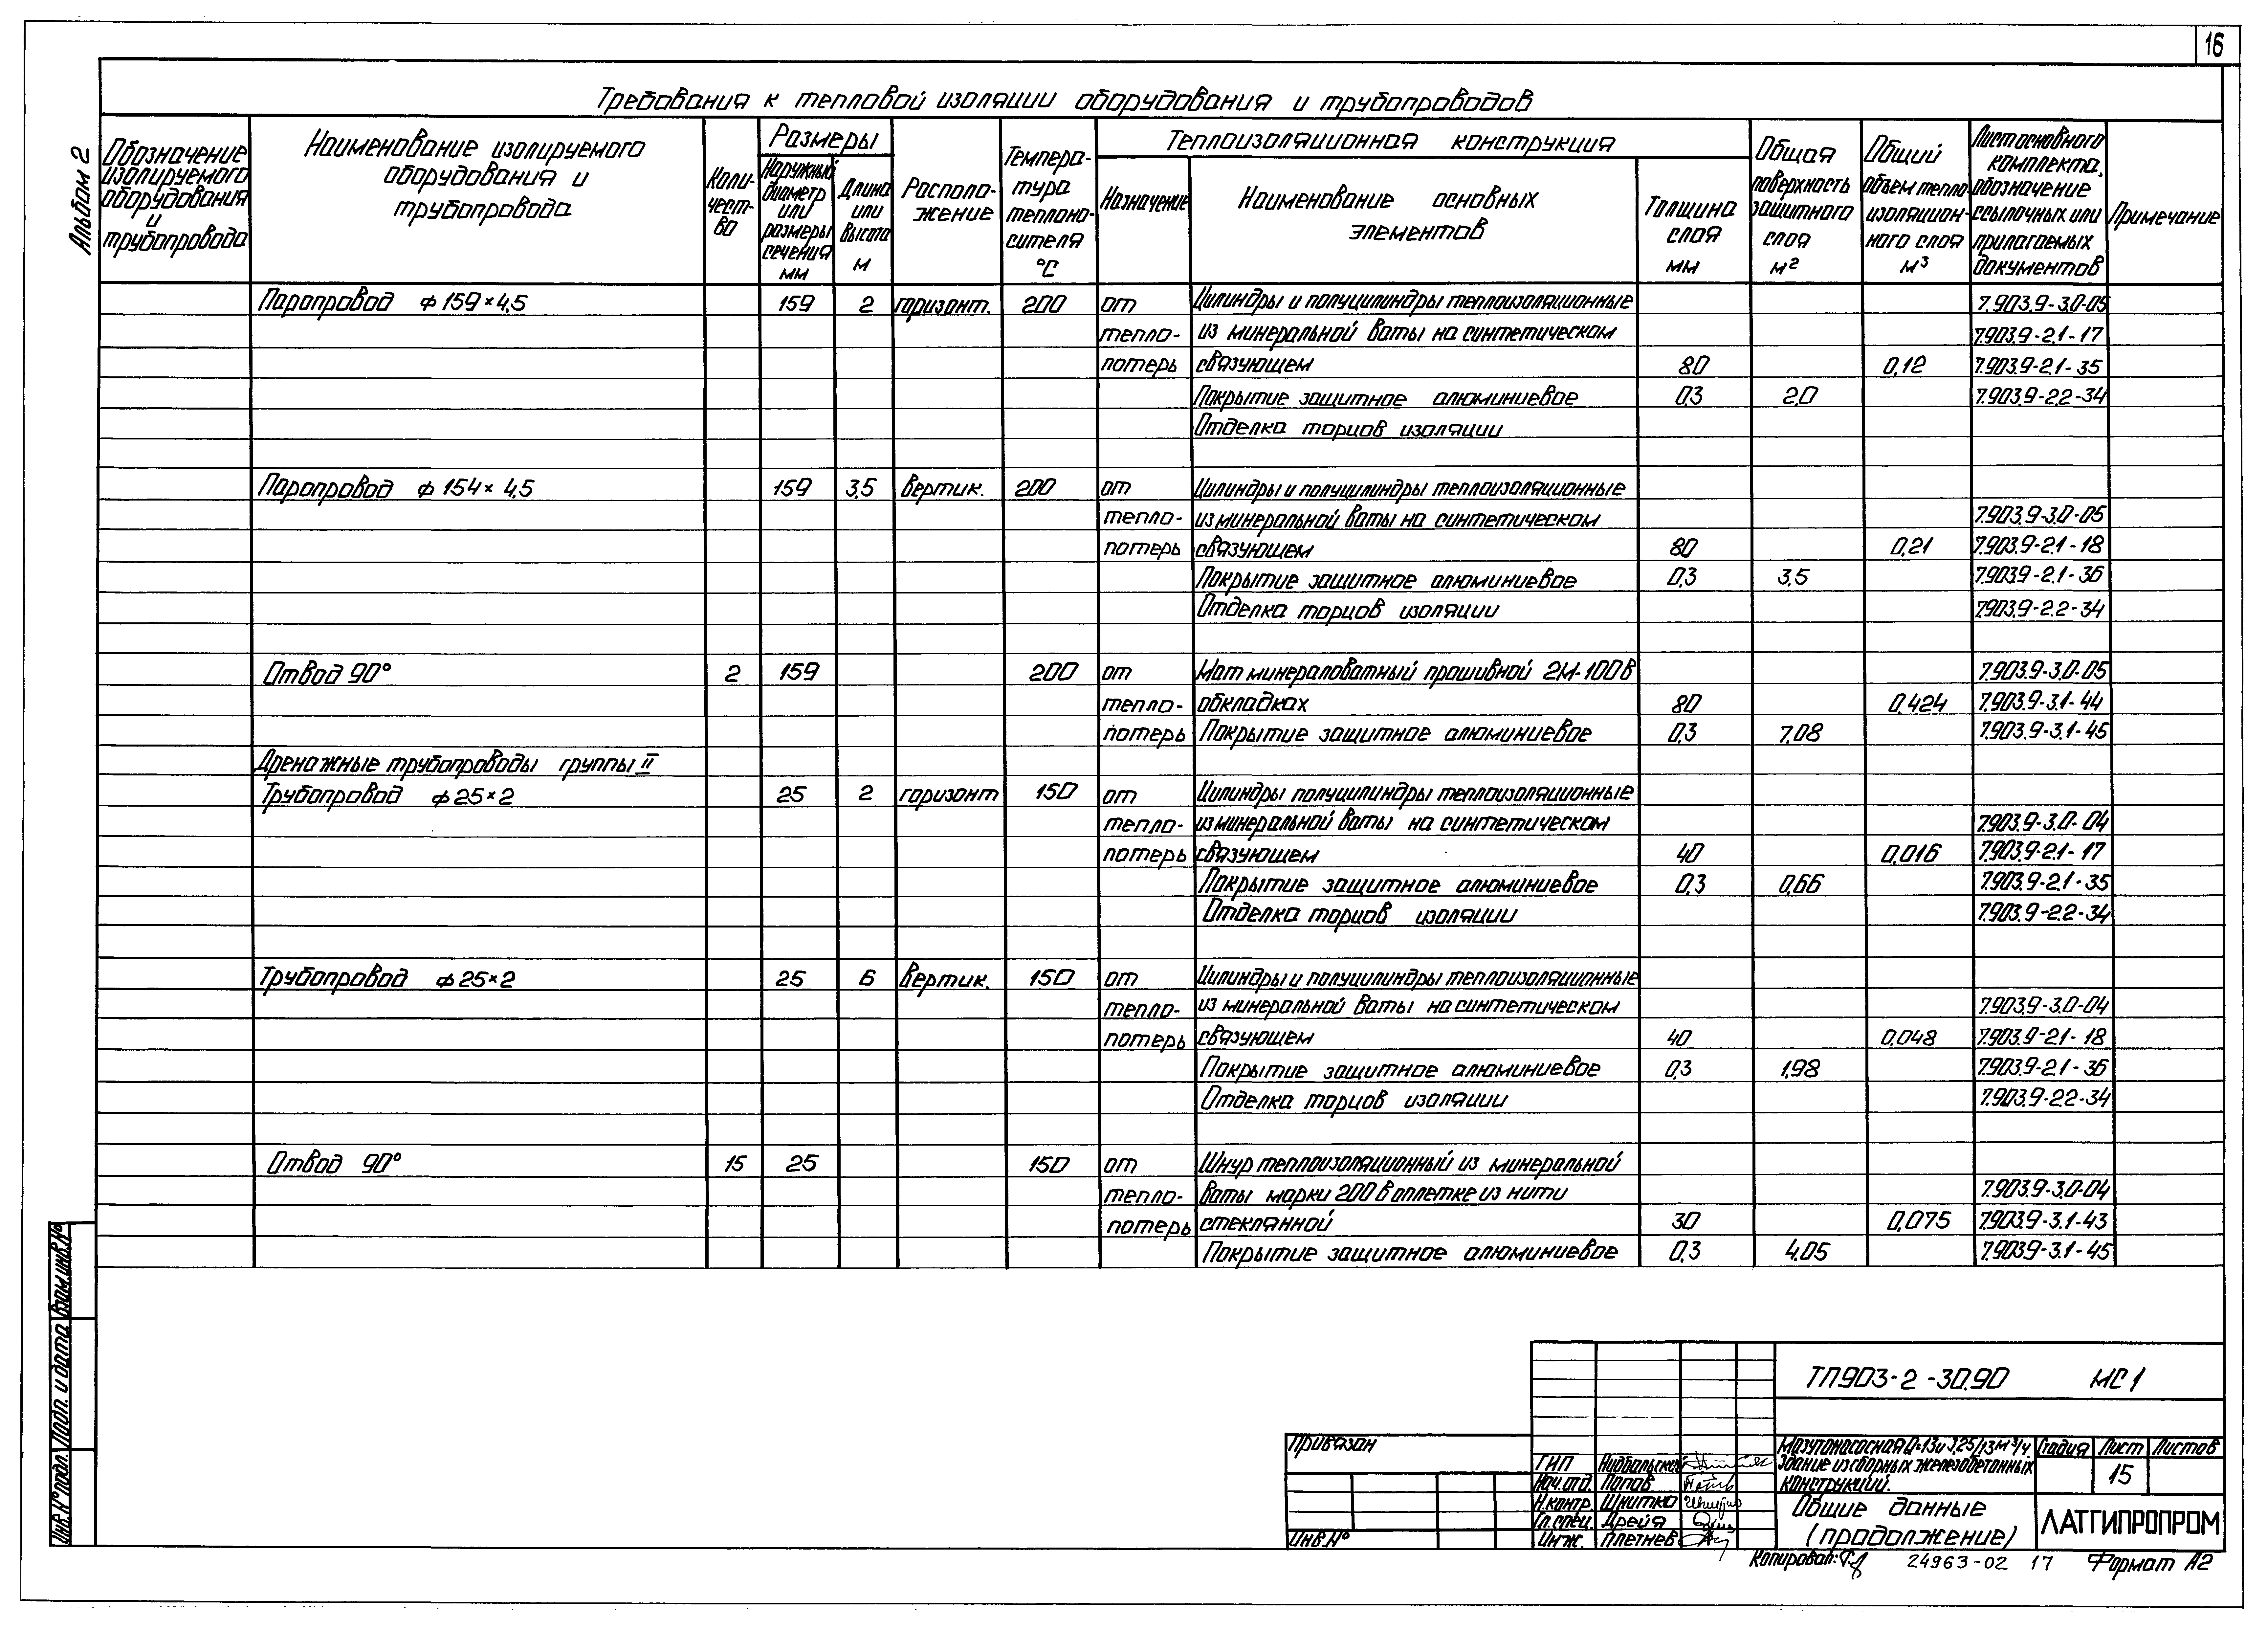 16
Альбом 2
Требования к тепловой изоляции оборудования и трубопроводов
Обозначение изолируемого оборудования и трубопровода
Наименование изолируемого оборудования и трубопровода
Коли-чест-во
Размеры
Наружный диаметр или размеры сечения мм
Длина или высота м
Располо-жение
Темпера-тура теплоно-сителя °С
Теплоизоляционная конструкция
Назначение
Наименование основных элементов
Толщина слоя мм
Общая поверхность защитного слоя м²
Общий объем тепло-изоляцион-ного слоя м³
Лист основного комплекта, обозначение ссылочных или прилагаемых документов
Примечание
Паропровод ф 159×4,5 159 2 горизонт. 200 от Цилиндры и полуцилиндры теплоизоляционные 7.903.9-3.0-05
тепло- из минеральной ваты на синтетическом 7.903.9-2.1-17
потерь связующем 80 0,12 7.903.9-2.1-35
Покрытие защитное алюминиевое 0,3 2.0 7.903.9-2.2-34
Отделка торцов изоляции
Паропровод ф 154×4,5 159 3,5 Вертик. 200 от Цилиндры и полуцилиндры теплоизоляционные
тепло- из минеральной ваты на синтетическом 7.903.9-3.0-05
потерь связующем 80 0,21 7.903.9-2.1-18
Покрытие защитное алюминиевое 0,3 3,5 7.903.9-2.1-36
Отделка торцов изоляции 7.903.9-2.2-34
Отвод 90° 2 159 200 от Мат минераловатный прошивной 2М-100 в 7.903.9-3.0-05
тепло- обкладках 80 0,424 7.903.9-3.1-44
потерь Покрытие защитное алюминиевое 0,3 7,08 7.903.9-3.1-45
Дренажные трубопроводы группы II
Трубопровод ф 25×2 25 2 горизонт 150 от Цилиндры полуцилиндры теплоизоляционные
тепло- из минеральной ваты на синтетическом 7.903.9-3.0-04
потерь связующем 40 0,016 7.903.9-2.1-17
Покрытие защитное алюминиевое 0,3 0,66 7.903.9-2.1-35
Отделка торцов изоляции 7.903.9-2.2-34
Трубопровод ф 25×2 25 6 Вертик. 150 от Цилиндры и полуцилиндры теплоизоляционные
тепло- из минеральной ваты на синтетическом 7.903.9-3.0-04
потерь связующем 40 0,048 7.903.9-2.1-18
Покрытие защитное алюминиевое 0,3 1,98 7.903.9-2.1-36
Отделка торцов изоляции 7.903.9-2.2-34
Отвод 90° 15 25 150 от Шнур теплоизоляционный из минеральной
тепло- ваты марки 200 в оплетке из нити 7.903.9-3.0-04
потерь стеклянной 30 0,075 7.903.9-3.1-43
Покрытие защитное алюминиевое 0,3 4,05 7.903.9-3.1-45
Инв.№ подл. Подп. и дата Взам.инв.№
ТП903-2-30.90 МС1
Привязан
Инв.№
ГИП
Нач.отд. Попов
Н.контр. Шнитко
Гл.спец. Дрейя
Инж. Плетнев
Мазутонасосная Q=13 и 3,25/13 м³/ч.
Здание из сборных железобетонных
конструкций.
Стадия Лист Листов
15
Общие данные
(продолжение)
ЛАТГИПРОПРОМ
Копировал: 24963-02 17 Формат А2